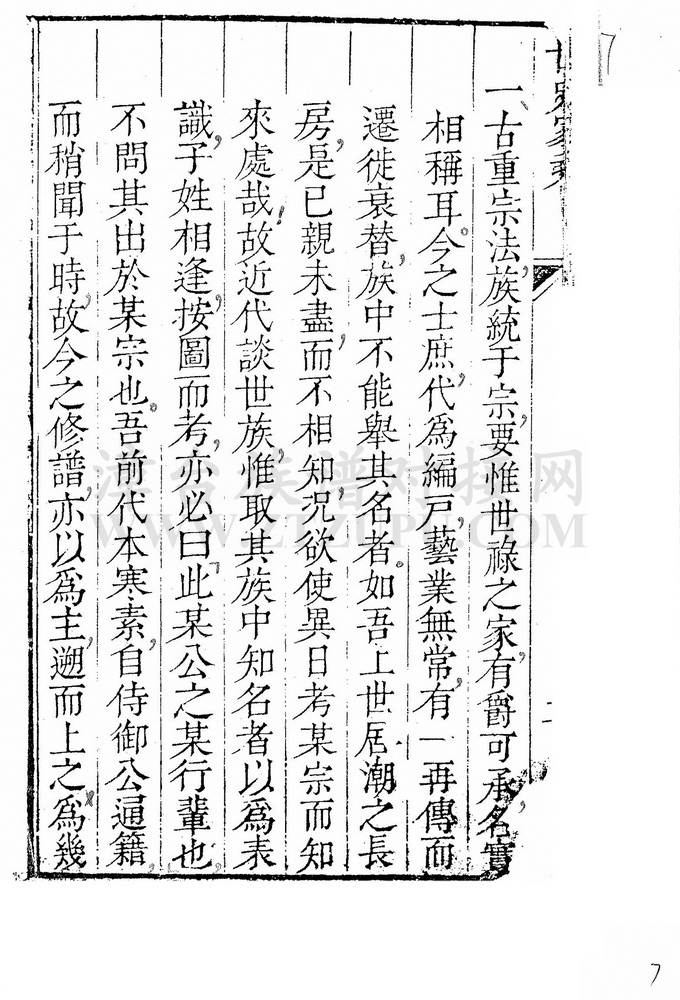 一古重宗法，族統于宗，要惟世祿之家，有爵可承，名實
相稱耳。今之士庶，代爲編戶，藝業無常，有一再傳而
遷徙衰替，族中不能舉其名者。如吾上世居潮之長
房，是已親未盡，而不相知，況欲使異日考某宗而知
來處哉！故近代談世族，惟取其族中知名者以爲表
識，子姓相逢，按圖而考，亦必曰此某公之某行輩也，
不問其出於某宗也。吾前代本寒素，自侍御公通籍，
而稍聞于時，故今之修譜，亦以爲主，遡而上之，爲幾
WWW.ZTZUPU.COM
7
7